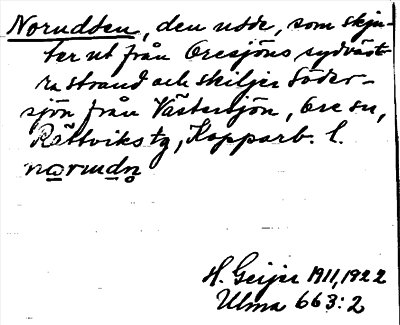 Norudden, den udde, som skju-
ter ut från Oresjöns sydväst-
ra strand och skiljer Söder-
sjön från Västersjön, Ore sn,
Rättviks tg, Kopparb. l.
norudn
H. Geijer 1911, 1922
Ulma 663:2